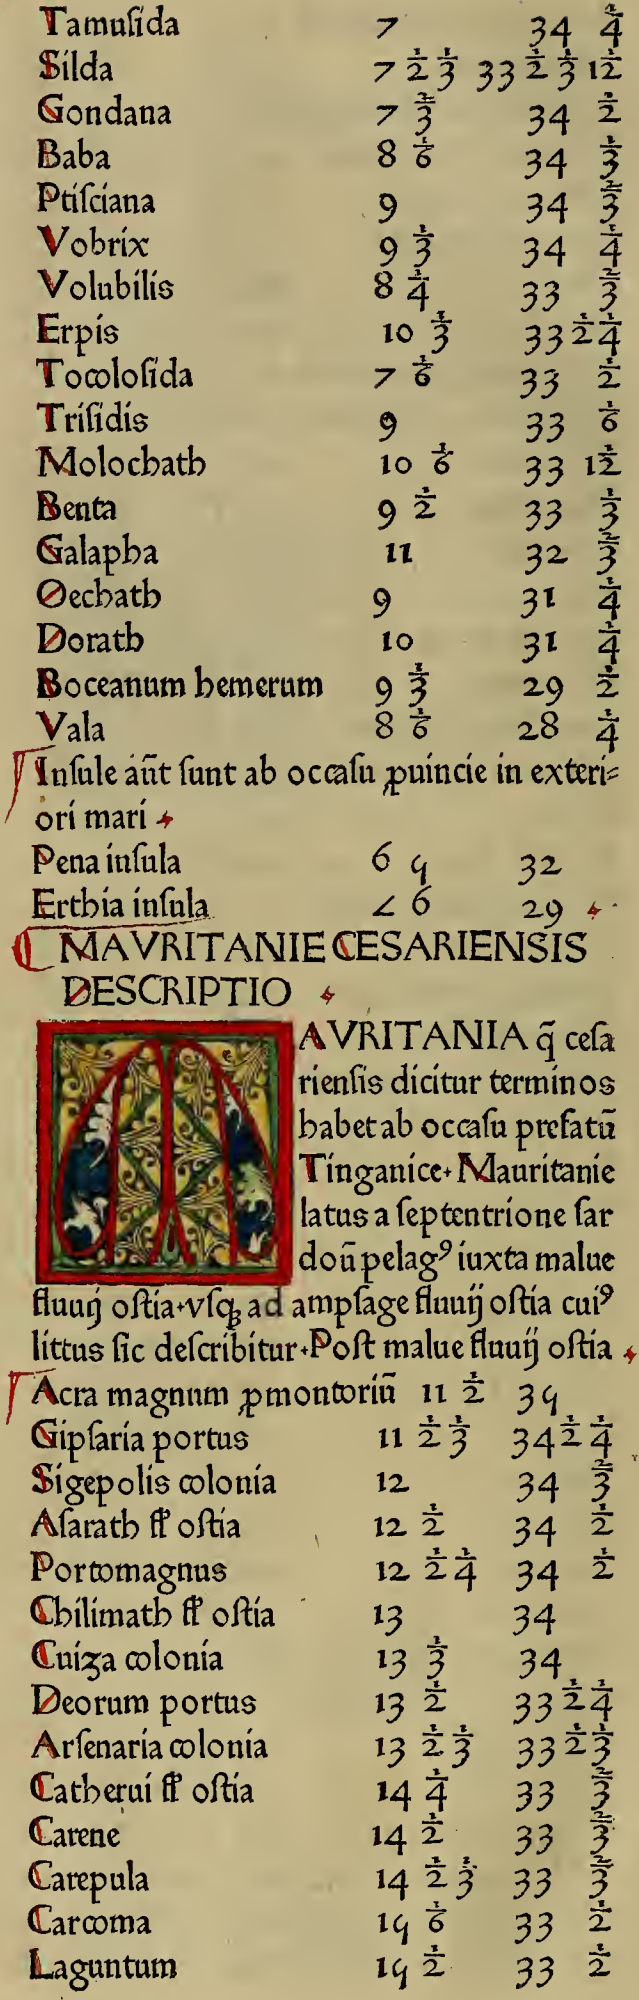 Tamuſida 7 34 1/4
Silda 7 1/2 1/3 33 1/2 1/3 1/12
Gondana 7 2/3 34 1/2
Baba 8 1/6 34 1/3
Ptiſciana 9 34 2/3
Vobrix 9 1/3 34 1/4
Volubilis 8 1/4 33 2/3
Erpis 10 1/3 33 1/2 1/4
Tocoloſida 7 1/6 33 1/2
Triſidis 9 33 1/6
Molochath 10 1/6 33 1/12
Benta 9 1/2 33 1/3
Galapha 11 32 2/3
Oechath 9 31 1/4
Dorath 10 31 1/4
Boceanum hemerum 9 1/3 29 1/2
Vala 8 1/6 28 1/4
Inſule aūt ſunt ab occaſu ꝓuincie in exteri⸗
ori mari
Pena inſula 6 5 32
Erthia inſula ∠ 6 29
MAVRITANIE CESARIENSIS
DESCRIPTIO
MAVRITANIA q̄ ceſa
rienſis dicitur terminos
habet ab occaſu prefatū
Tinganice· Mauritanie
latus a ſeptentrione ſar
doū pelagꝰ iuxta malue
fluuij oſtia·vſqꝫ ad ampſage fluuij oſtia cuiꝰ
littus ſic deſcribitur·Poſt malue fluuij oſtia
Acra magnum ꝓmontoriū 11 1/2 35
Gipſaria portus 11 1/2 1/3 34 1/2 1/4
Sigepolis colonia 12 34 2/3
Aſarath fl' oſtia 12 1/2 34 1/2
Portomagnus 12 1/2 1/4 34 1/2
Chilimath fl' oſtia 13 34
Cuiza colonia 13 1/3 34
Deorum portus 13 1/2 33 1/2 1/4
Arſenaria colonia 13 1/2 1/3 33 1/2 1/3
Catherui fl' oſtia 14 1/4 33 2/3
Carene 14 1/2 33 2/3
Carepula 14 1/2 1/3 33 2/3
Carcoma 15 1/6 33 1/2
Laguntum 15 1/2 33 1/2